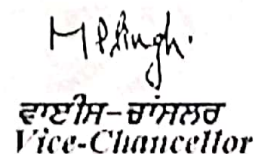 MPSingh.
ਵਾਈਸ-ਚਾਂਸਲਰ
Vice-Chancellor